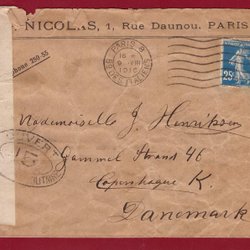 . NICOLAS, 1, Rue Daunou. PARIS
phone 250-55
PARIS 8
25
Mademoiselle J. Henriksen
Gammel Strand 46
Copenhague K.
Danemark
OUVERT